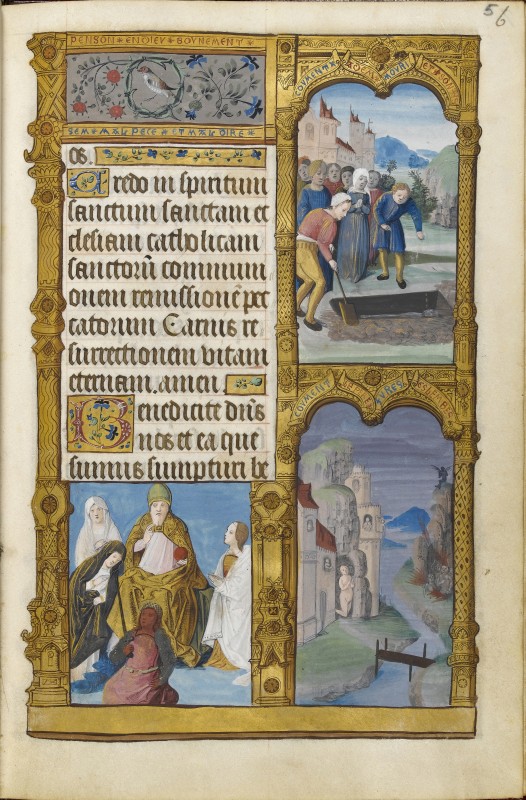 56
PENSON EN DIEV BOVNEMENT
SEM MAL PECE ET MAL DIRE
os.
Credo in spiritum
sanctum sanctam et
clesiam catholicam
sanctorū commum
onem remissionē pec
catorum Carnis re
surrectionem vitam
eternam. amen.
Benedicite dn̄s
nos et ea que
sumus sumpturi be